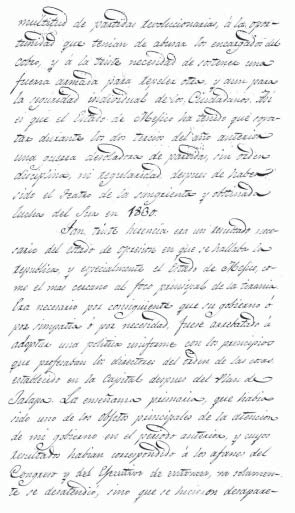 multitud de partidas revolucionarias, á la opor-
tunidad que tenian de abusar los encargados del
cobro, y á la triste necesidad de sostener una
fuerza armada para repeler otra, y aun para
la seguridad individual de los Ciudadanos. Asi
es que el Estado de Mejico ha tenido que sopor-
tar durante los dos tercios del año anterior
una guerra desoladora de partidas, sin orden
disciplina, ni regularidad despues de haber
sido el teatro de la sangrienta y obstinada
lucha del Sur en 1830.
Tan triste herencia era un resultado nece-
sario del estado de opresion en que se hallaba la
republica, y especialmente el Estado de Mejico, co-
mo el mas cercano al foco principal de la tirania
Era necesario por consiguiente que su gobierno ó
por simpatia ó por necesidad, fuese arrebatado á
adoptar una politica uniforme con los principios
que profesaban los directores del orden de las cosas
establecido en la Capital despues del Plan de
Jalapa. La enseñanza primaria, que habia
sido uno de los objetos principales de la atencion
de mi gobierno en el periodo anterior, y cuyos
resultados habian correspondido á los afanes del
Congreso y del Ejecutivo de entonces, no solamen-
te se desatendió, sino que se hicieron desapare-